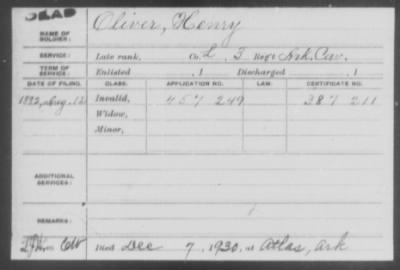 DEAD
NAME OF SOLDIER: Oliver, Henry
SERVICE: Late rank, Co. L, 3 Reg't Ark. Cav.
TERM OF SERVICE: Enlisted , 1 Discharged , 1
DATE OF FILING. CLASS. APPLICATION NO. LAW. CERTIFICATE NO.
1882, Aug. 12 Invalid, 457 249 387 211
Widow,
Minor,
ADDITIONAL SERVICES:
REMARKS:
CW Died Dec 7, 1930, at Atlas, Ark